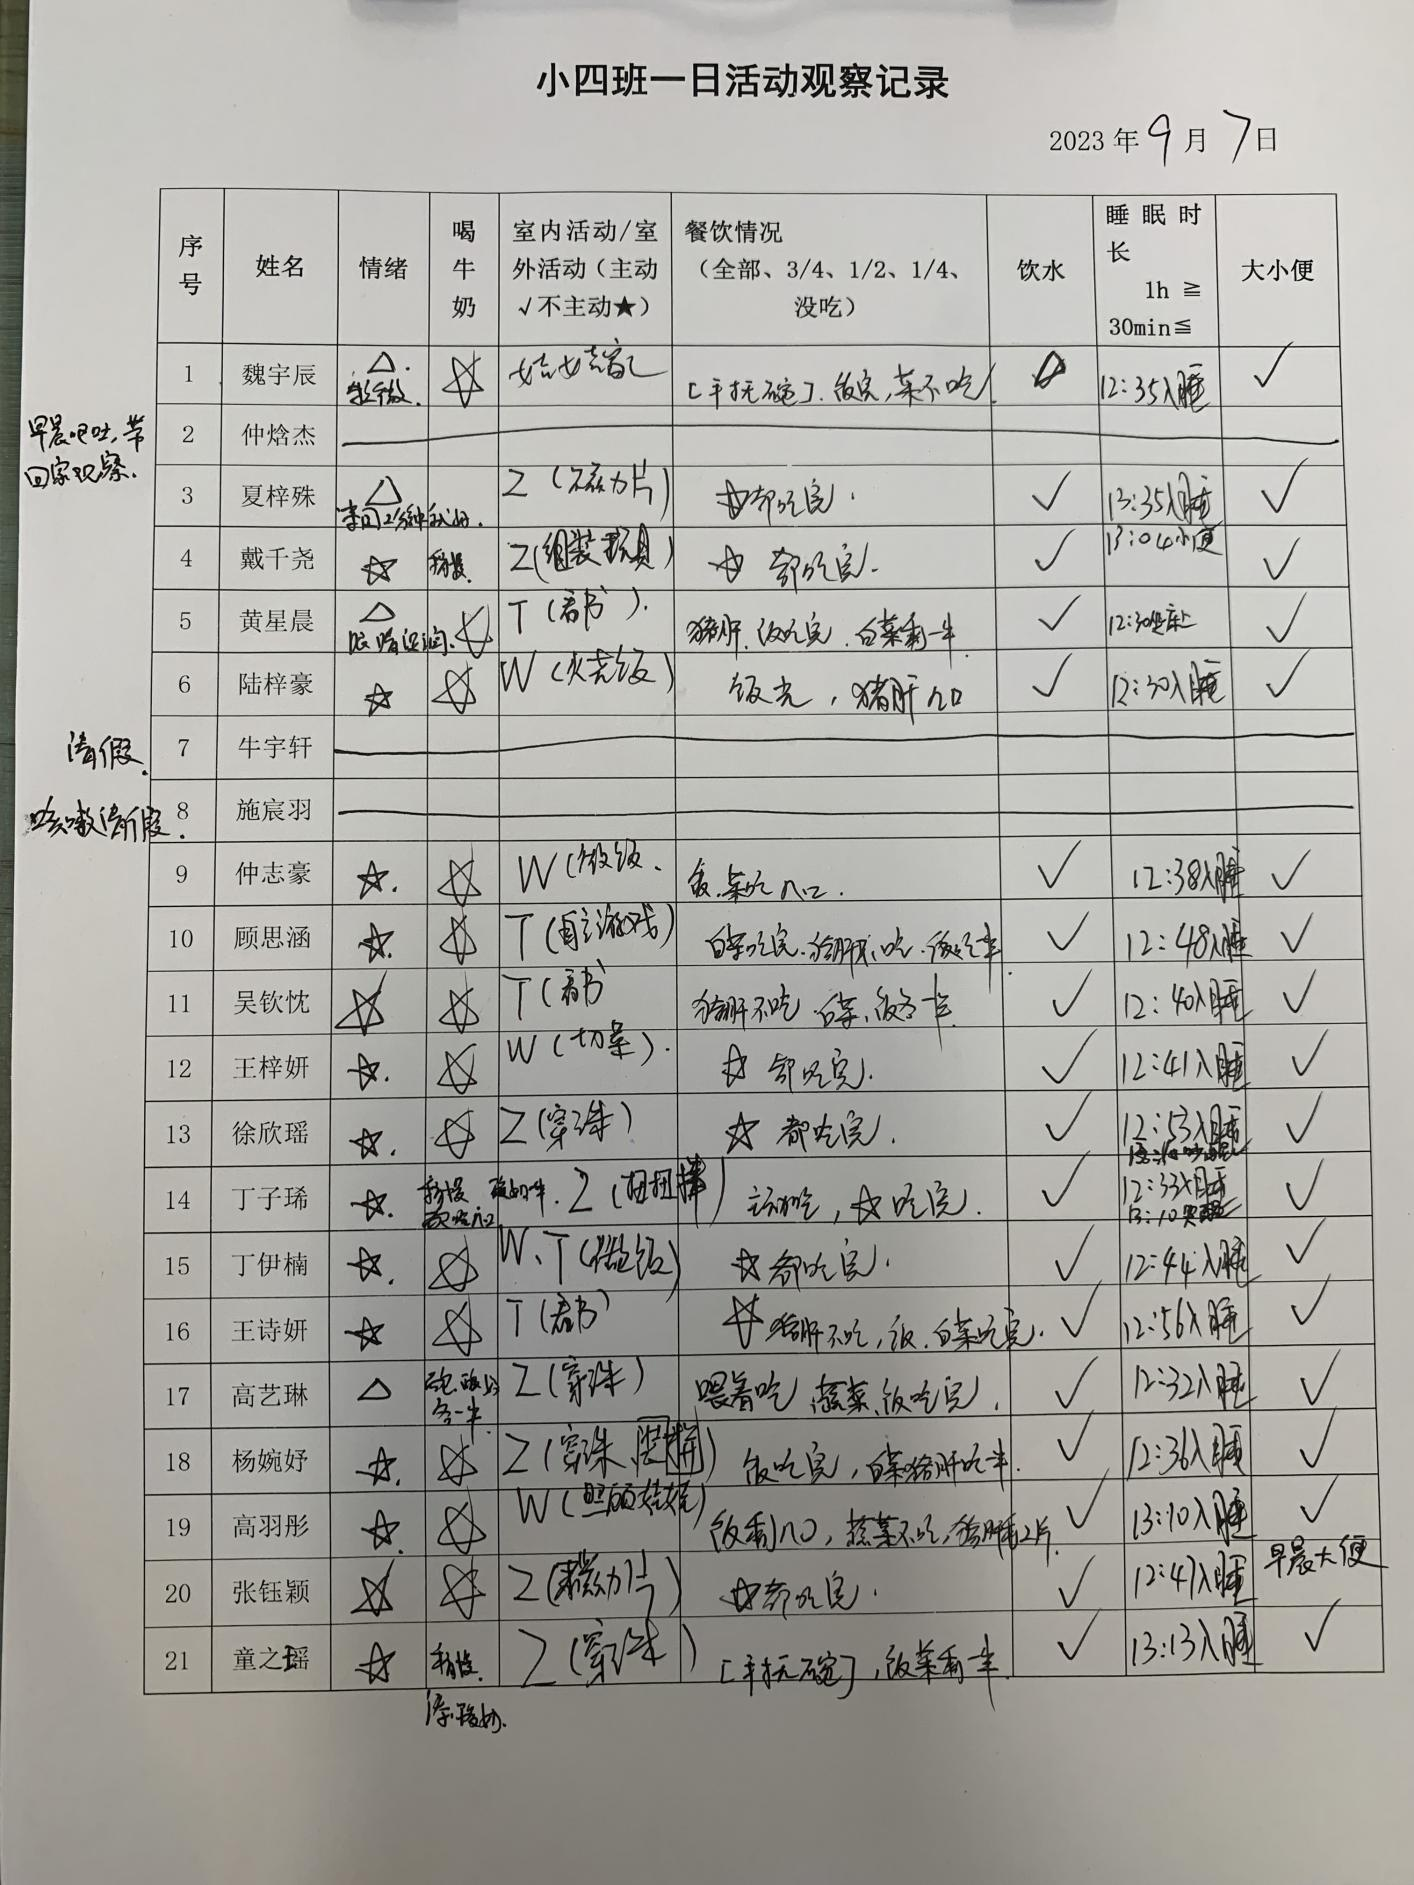 小四班一日活动观察记录
2023 年 9 月 7 日
序号 姓名 情绪 喝牛奶 室内活动/室外活动（主动√不主动★） 餐饮情况（全部、3/4、1/2、1/4、没吃） 饮水 睡眠时长 1h ≧ 30min≦ 大小便
1 魏宇辰 △. ☆ [手扶碗]. 饭完,菜不吃 12:35入睡 ✓
早晨呕吐,带
回家观察.
2 仲焓杰
3 夏梓殊 △ Z (磁力片) ☆都吃完. ✓ 13:35入睡 ✓
4 戴千尧 ☆ 稍慢. Z(组装玩具) ☆ 都吃完. ✓ 13:04小便 ✓
5 黄星晨 △ ☆ T (看书). 猪肝.饭吃完.白菜剩一半 ✓ 12:30坐床上 ✓
6 陆梓豪 ☆ ☆ W (火龙饭) 饭光,猪肝几口 ✓ 12:30入睡 ✓
请假. 7 牛宇轩
咳嗽请假. 8 施宸羽
9 仲志豪 ☆. ☆ W (做饭. 饭.菜吃几口. ✓ 12:38入睡 ✓
10 顾思涵 ☆. ☆ T (自主游戏) 白菜吃完.猪肝不吃.饭吃一半 ✓ 12:48入睡 ✓
11 吴钦忱 ☆ ☆ T (看书 猪肝不吃 白菜、饭各一半. ✓ 12:40入睡 ✓
12 王梓妍 ☆. ☆ W (切菜). ☆ 都吃完. ✓ 12:41入睡 ✓
13 徐欣瑶 ☆. ☆ Z(穿珠) ☆ 都吃完. ✓ 12:53入睡 ✓
14 丁子琋 ☆. 稍慢 Z (扭扭棒) 主动吃, ☆ 吃完. ✓ 12:33入睡 13:10哭醒 ✓
15 丁伊楠 ☆. ☆ W、T (做饭) ☆都吃完. ✓ 12:44入睡 ✓
16 王诗妍 ☆ ☆ T (看书) ☆猪肝不吃,饭.白菜吃完. ✓ 12:56入睡 ✓
17 高艺琳 △ 各一半. Z (穿珠) 喂着吃 蔬菜、饭吃完. ✓ 12:32入睡 ✓
18 杨婉妤 ☆. ☆ Z (穿珠、) 饭吃完,白菜猪肝吃一半. ✓ 12:36入睡 ✓
19 高羽彤 ☆. ☆ W (照顾娃娃) 饭剩几口,蔬菜不吃,猪肝2片. ✓ 13:10入睡 ✓
20 张钰颖 ☆ ☆ Z (磁力片) ☆都吃完. ✓ 12:47入睡 早晨大便
21 童之瑶 ☆. 稍慢. Z (穿珠) [手扶碗],饭菜剩一半. ✓ 13:13入睡 ✓